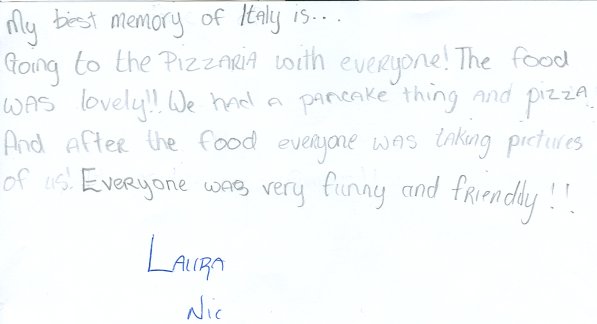 My best memory of Italy is...
Going to the Pizzaria with everyone! The food
was lovely!! We had a pancake thing and pizza.
And after the food everyone was taking pictures
of us! Everyone was very funny and friendly!!
Laura
Nic